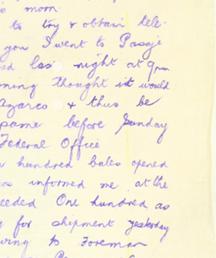 's morn
to try & obtain tele-
you I went to Passaje
las' night at 9 pm
ming thought it would
Azarco & thus be
same before Sunday
Federal Office
n hundred bales opened
as informed me at the
eeded One hundred as
g for shipment yesterday
wing to Foreman